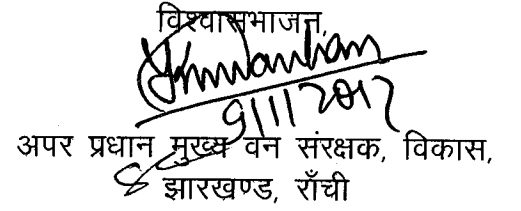 विश्वासभाजन,
9/11/2012
अपर प्रधान मुख्य वन संरक्षक, विकास,
झारखण्ड, राँची